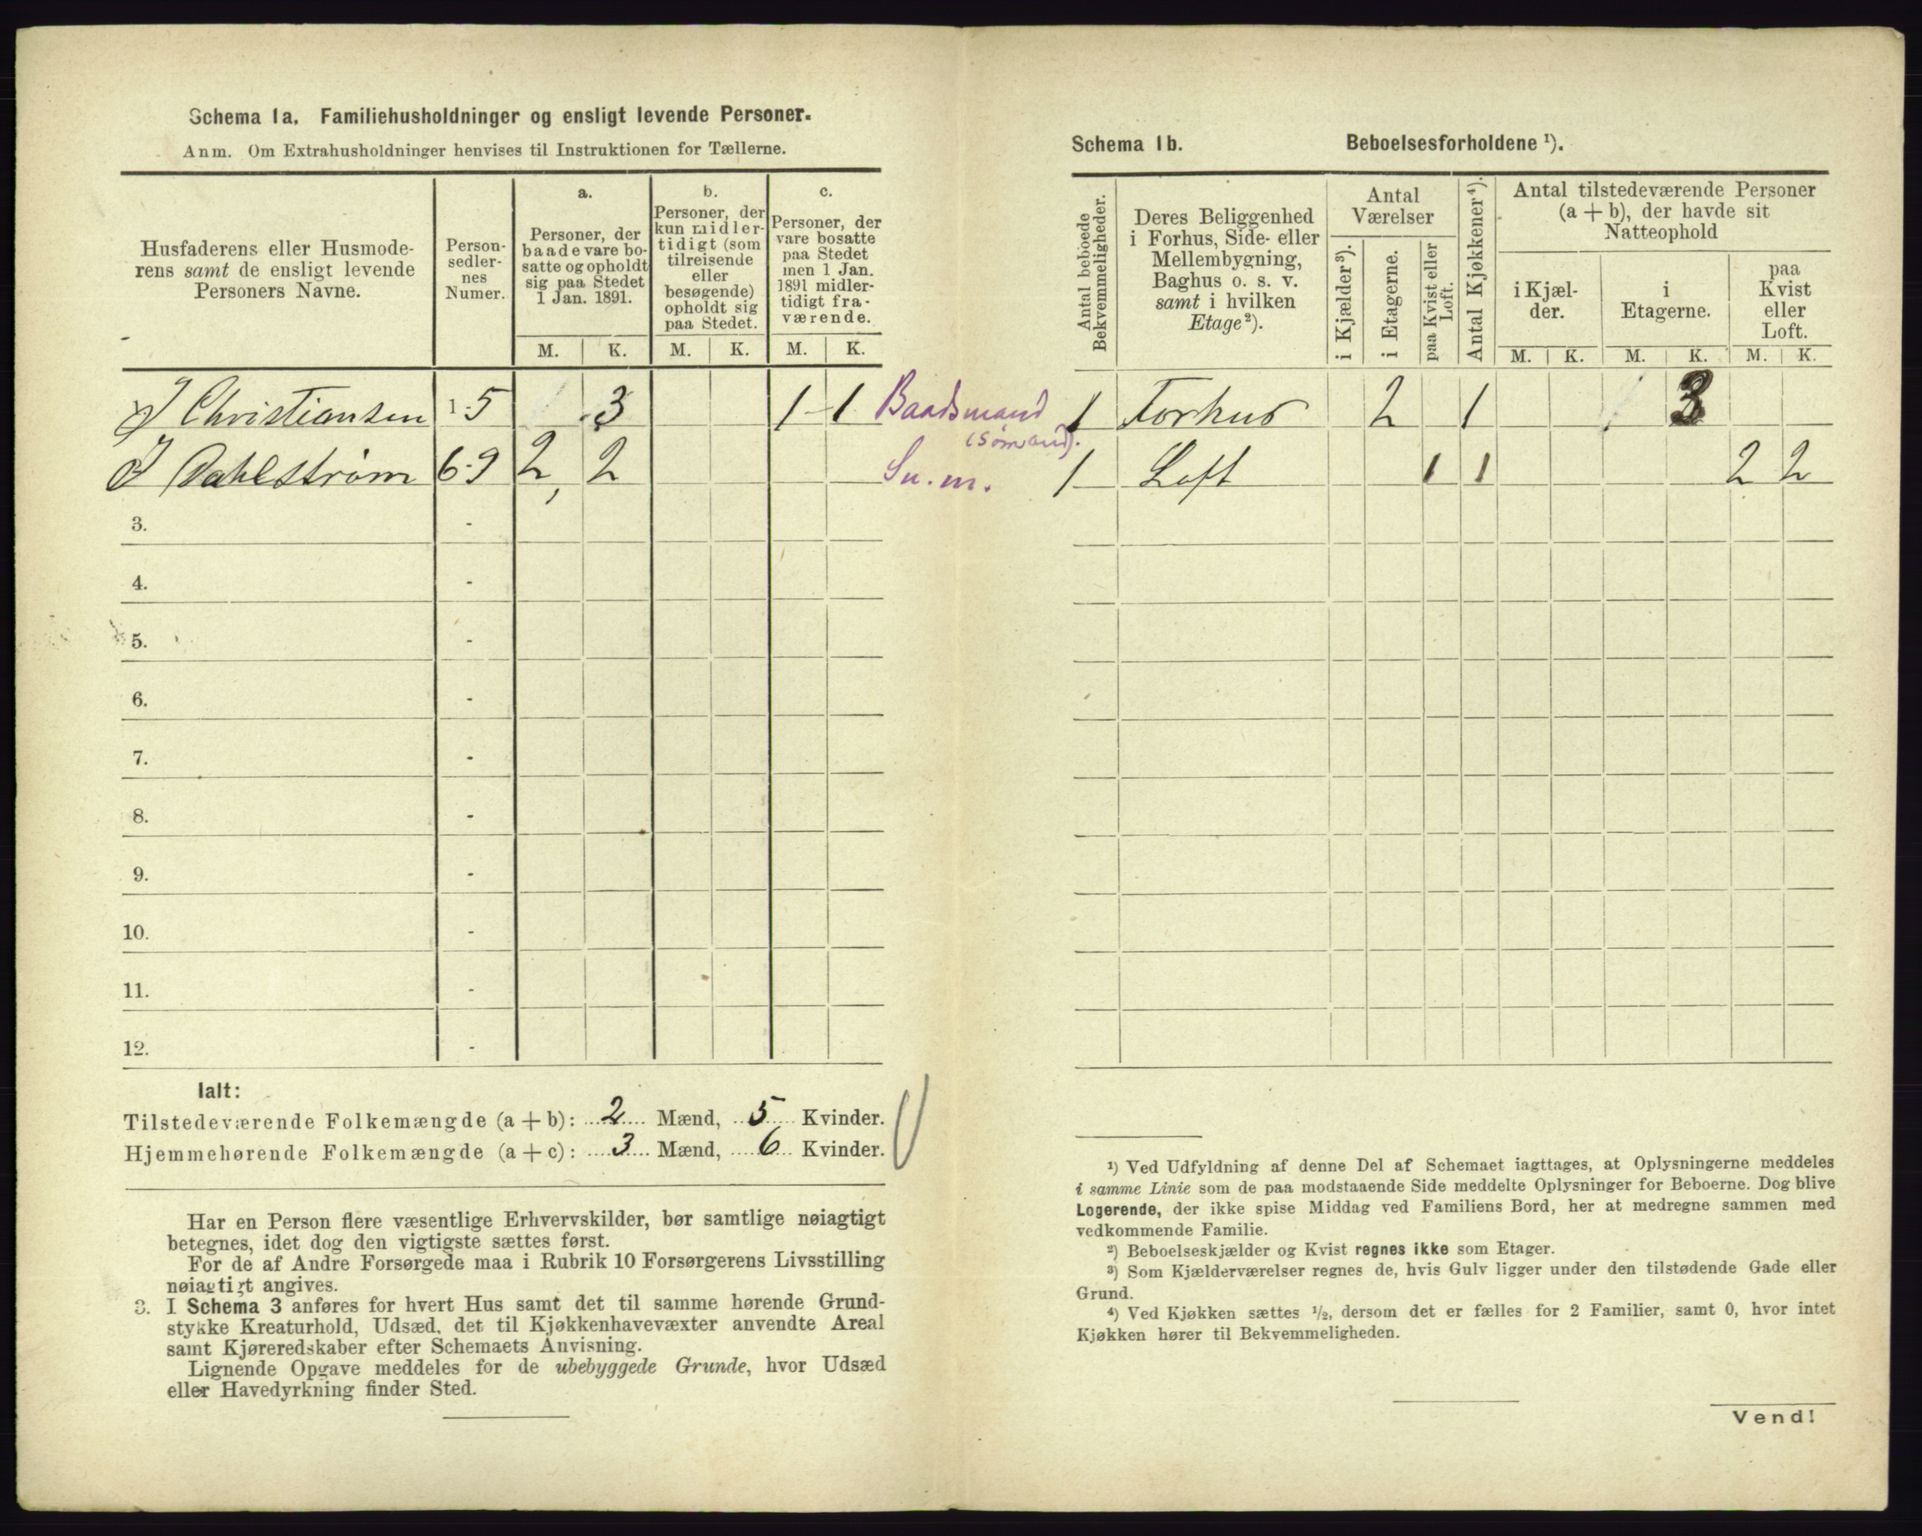 Schema 1a. Familiehusholdninger og ensligt levende Personer.
Anm. Om Extrahusholdninger henvises til Instruktionen for Tællerne.
Husfaderens eller Husmode-
rens samt de ensligt levende
Personers Navne.
Person-
sedler-
nes
Numer.
a.
Personer, der
baade vare bo-
satte og opholdt
sig paa Stedet
1 Jan. 1891.
b.
Personer, der
kun midler-
tidigt (som
tilreisende
eller
besøgende)
opholdt sig
paa Stedet.
c.
Personer, der
vare bosatte
paa Stedet
men 1 Jan.
1891 midler-
tidigt fra-
værende.
M. K. M. K. M. K.
J Christiansen 1-5 3 1 1 Baadsmand
(Sømand).
J Dahlstrøm 6-9 2 2 Sn. m.
3. -
4. -
5. -
6. -
7. -
8. -
9. -
10. -
11. -
12. -
Ialt:
Tilstedeværende Folkemængde (a + b): 2 Mænd, 5 Kvinder.
Hjemmehørende Folkemængde (a + c): 3 Mænd, 6 Kvinder.
Har en Person flere væsentlige Erhvervskilder, bør samtlige nøiagtigt
betegnes, idet dog den vigtigste sættes først.
For de af Andre Forsørgede maa i Rubrik 10 Forsørgerens Livsstilling
nøiagtigt angives.
3. I Schema 3 anføres for hvert Hus samt det til samme hørende Grund-
stykke Kreaturhold, Udsæd, det til Kjøkkenhavevæxter anvendte Areal
samt Kjøreredskaber efter Schemaets Anvisning.
Lignende Opgave meddeles for de ubebyggede Grunde, hvor Udsæd
eller Havedyrkning finder Sted.
Schema 1b. Beboelsesforholdene ¹).
Antal beboede
Bekvemmeligheder.
Deres Beliggenhed
i Forhus, Side- eller
Mellembygning,
Baghus o. s. v.
samt i hvilken
Etage²).
Antal
Værelser
i Kjælder³).
i Etagerne.
paa Kvist eller
Loft.
Antal Kjøkkener⁴).
Antal tilstedeværende Personer
(a + b), der havde sit
Natteophold
i Kjæl-
der.
i
Etagerne.
paa
Kvist
eller
Loft.
M. K. M. K. M. K.
1 Forhus 2 1 3
1 Loft 1 1 2 2
¹) Ved Udfyldning af denne Del af Schemaet iagttages, at Oplysningerne meddeles
i samme Linie som de paa modstaaende Side meddelte Oplysninger for Beboerne. Dog blive
Logerende, der ikke spise Middag ved Familiens Bord, her at medregne sammen med
vedkommende Familie.
²) Beboelseskjælder og Kvist regnes ikke som Etager.
³) Som Kjælderværelser regnes de, hvis Gulv ligger under den tilstødende Gade eller
Grund.
⁴) Ved Kjøkken sættes ½, dersom det er fælles for 2 Familier, samt 0, hvor intet
Kjøkken hører til Bekvemmeligheden.
Vend!